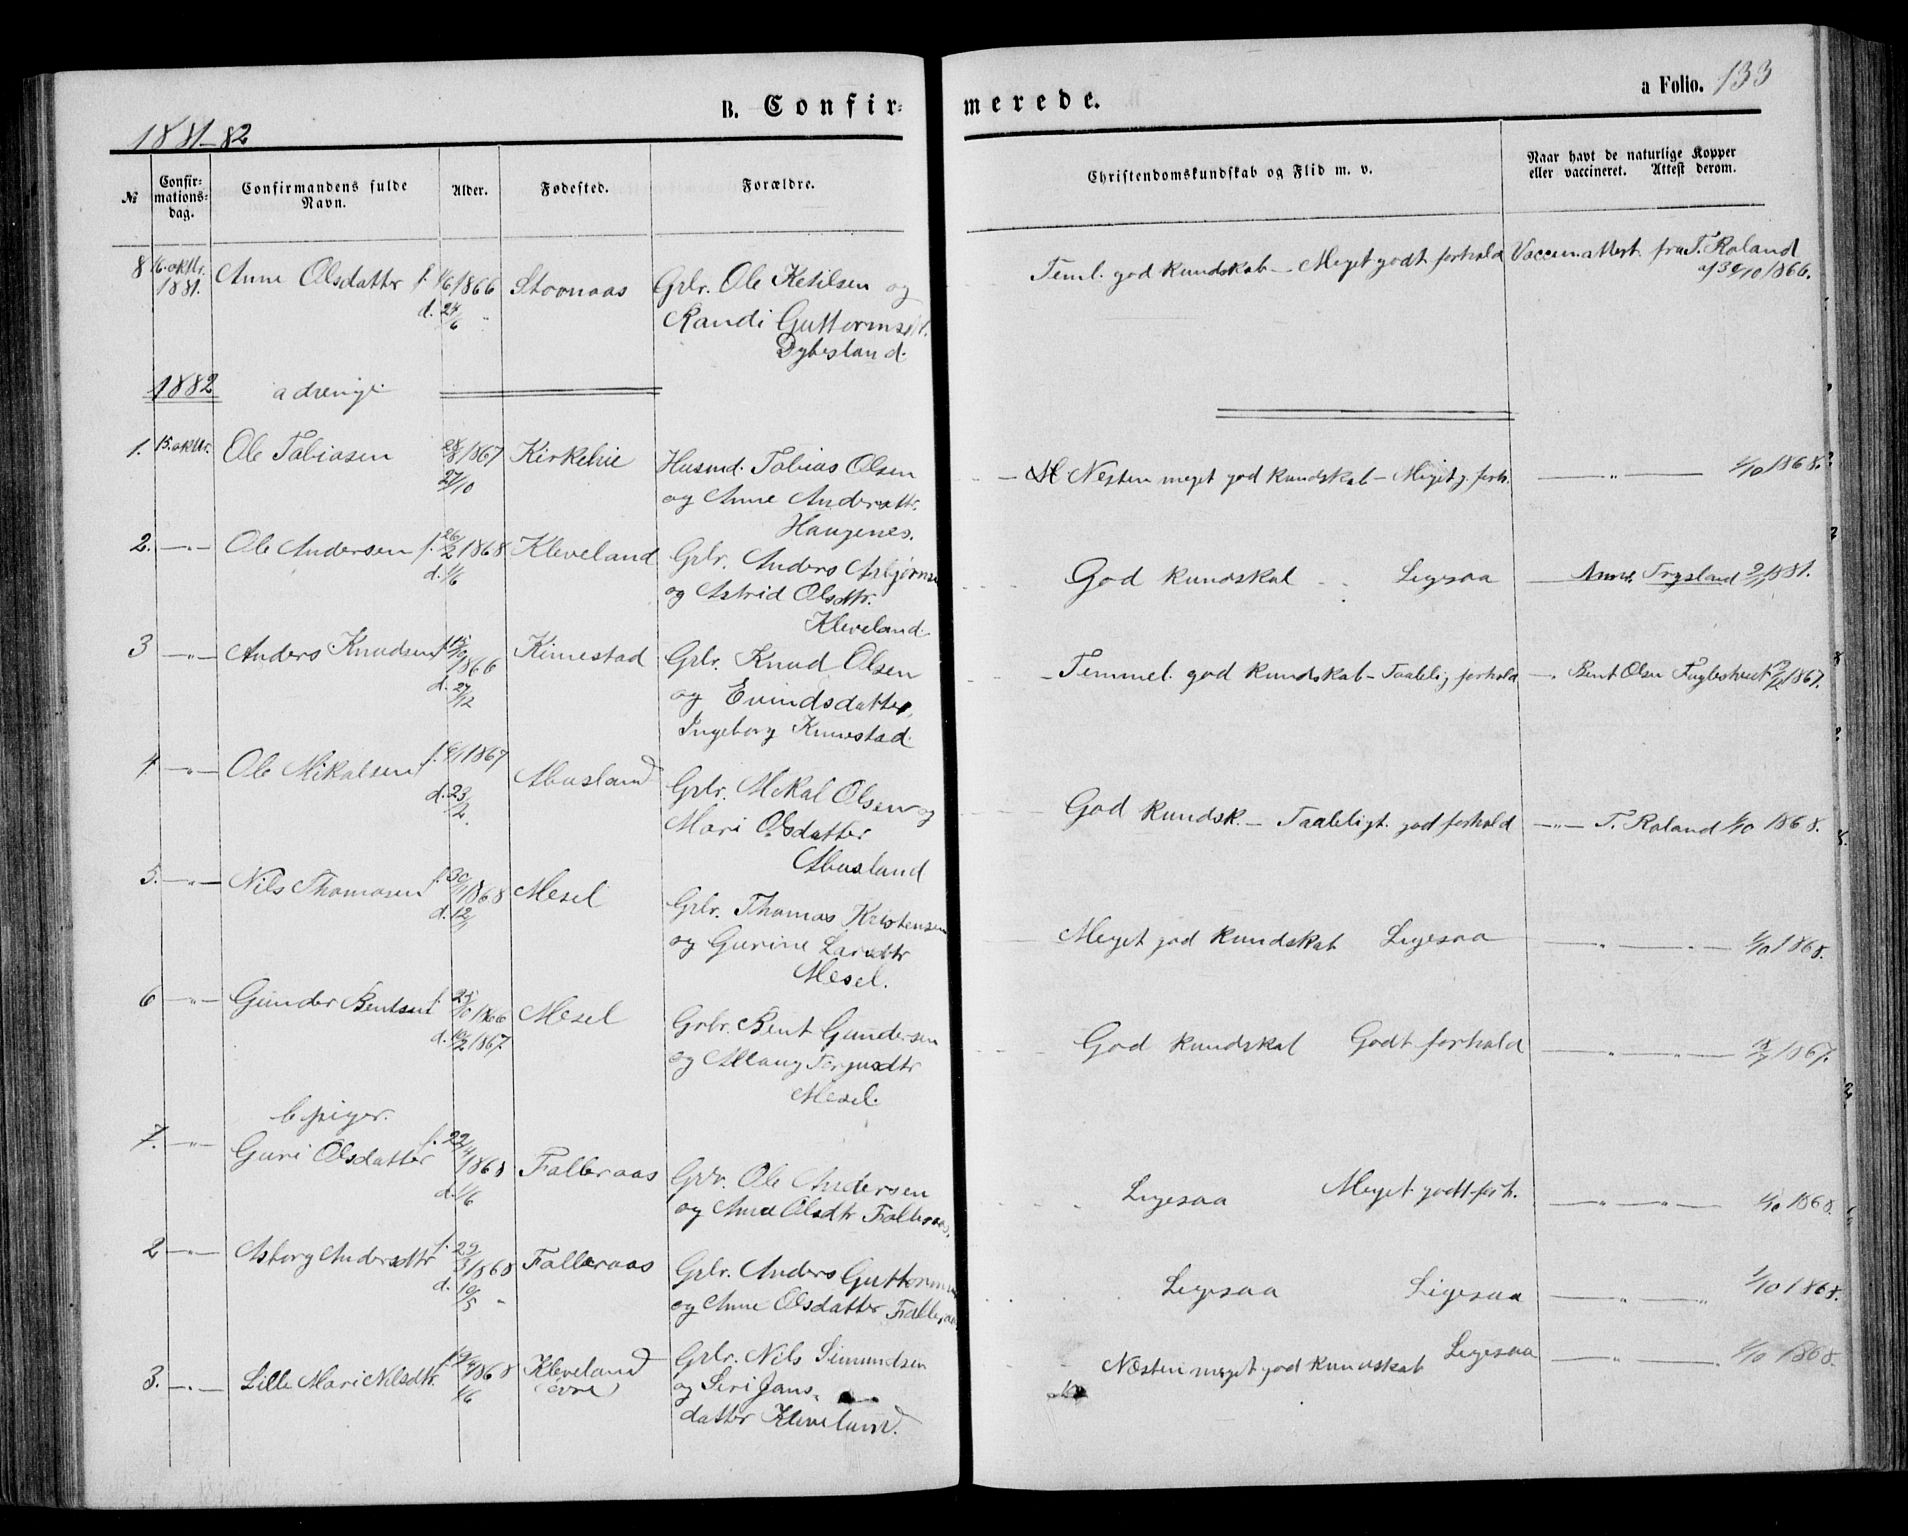 B. Confir- merede.
a Folio. 133
1881-82
№
Confir-
mations-
dag.
Confirmandens fulde
Navn.
Alder.
Fødested.
Forældre.
Christendomskundskab og Flid m. v.
Naar havt de naturlige Kopper
eller vaccineret. Attest derom.
8 16. oktbr. 1881. Anne Olsdatter f. 1/6 1866 Stovnaas Grbr. Ole Ketilsen og Teml. god kundskab - Meget godt forhold Vaccinattest fra T. Roland
d. 24/6 " Randi Guttormsdt. af 30/10 1866.
Dybesland.
1882 a drenge
1. 15. oktbr. Ole Tobiasen 28/8 1867 Kirkelie Husmd. Tobias Olsen Nesten meget god kundskab - Meget g. forh. — " — 1/10 1868.
27/10 og Anne Andersdtr.
Haugenes.
2. —"— Ole Andersen f. 26/2 1868 Kleveland Grbr. Anders God kundskab Ligesaa Trysland 1881.
d. 1/6 og Astrid Olsdtr.
Kleveland.
3 —"— Anders Knudsen 1866 Kinestad Grbr. Knud Olsen Temmel. god kundskab - Taalelig forhold — Bent Olsen 1867.
d. 27/12 og Evindsdatter,
Ingeborg Kinestad.
4 —"— Ole Mikalsen f. 1867 Abusland Grbr. Mikal Olsen og God kundsk. - Taaleligt god forhold —"— T. Roland 1/10 1868.
d. 23/2. Mari Olsdatter
Abusland
5. —"— Nils Thomasen f. 30/1 1868 Mesel Grbr. Thomas Kristensen Meget god kundskab Ligesaa — " — " — 1/10 1868.
d. og Gurine Larsdtr
Mesel.
6 —"— Gunder Bentsen f. 1866 Mesel Grbr. Bent Gundersen God kundskab Godt forhold — " — " — 1867.
d. 10/2 1867. og Aslaug Tergusdtr
Mesel.
b piger.
7. —"— Guri Olsdatter f. 22/4 1868 Falleraas Grbr. Ole Andersen Ligesaa Meget godt forh. — " — " — 1/10 1868.
d. 1/6 og Anne Olsdtr Falleraas,
2 —"— Asborg Andersdtr f. 29/3 1868 Falleraas Grbr. Anders Guttormsen Ligesaa Ligesaa — " — " 1/10 1868.
d. 10/5 " og Anne Olsdatter Falleraas.
3. —"— Lille Mari Nilsdtr. 1868 Kleveland Grbr. Nils Simundsen Næsten meget god kundskab Ligesaa — " — 1/10 1868.
1/6 (øvre) og Siri Jans-
datter Kleveland.